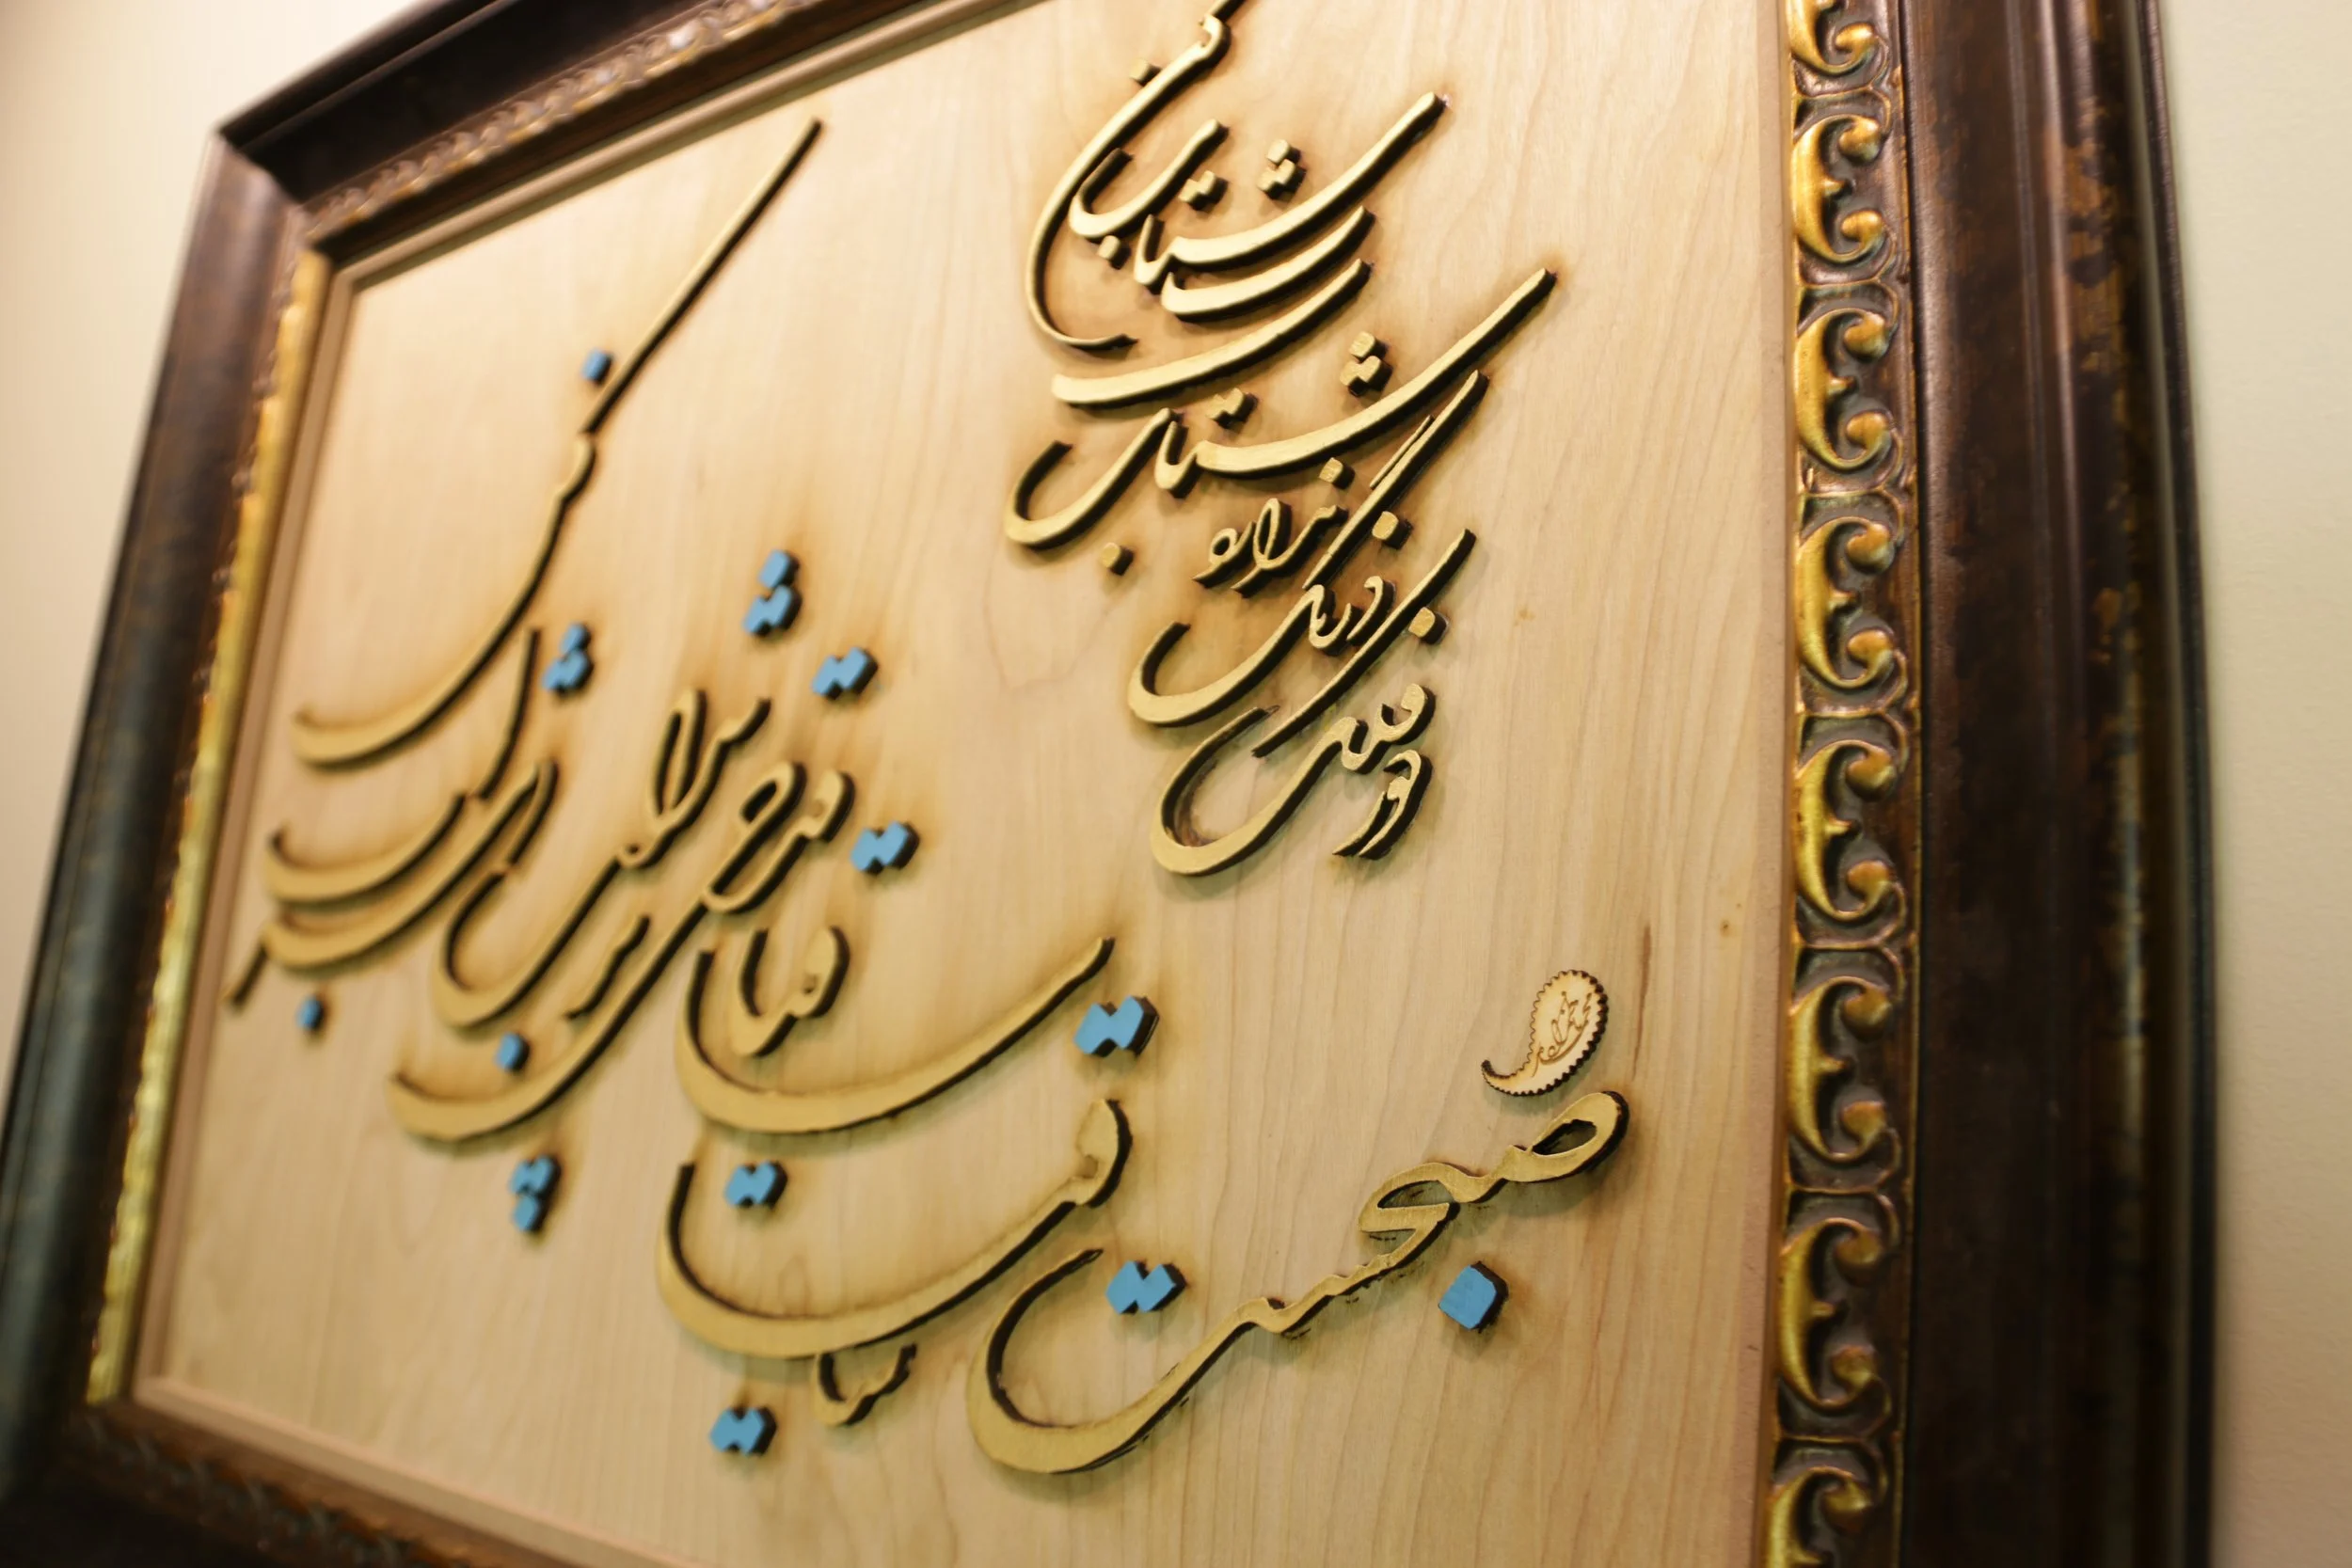 صبحست ساقیا ساقیا قدحی پر شراب کن
دور فلک درنگ ندارد شتاب شتاب کن